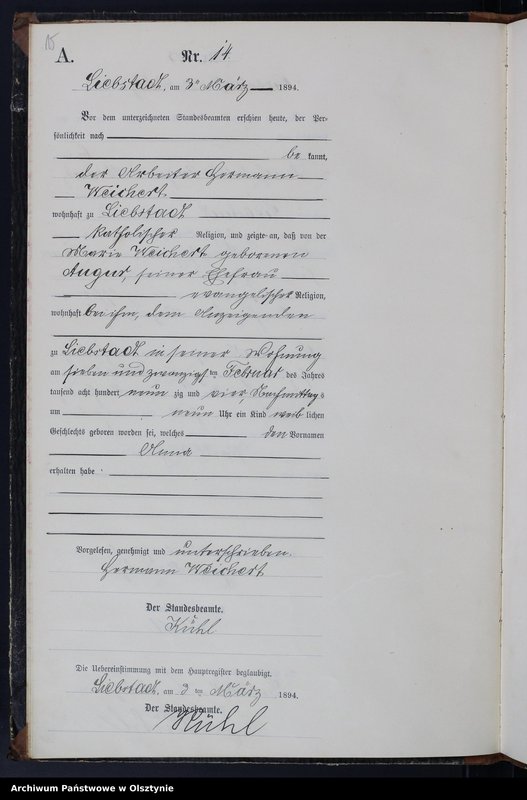 15
A. Nr. 14
Liebstadt, am 3ten März 1894.
Vor dem unterzeichneten Standesbeamten erschien heute, der Per-
sönlichkeit nach
be kannt,
der Arbeiter Hermann
Weichert
wohnhaft zu Liebstadt
katholischer Religion, und zeigte an, daß von der
Marie Weichert geborenen
Augur, seiner Ehefrau
evangelischer Religion,
wohnhaft bei ihm, dem Anzeigenden
zu Liebstadt in seiner Wohnung
am sieben und zwanzigsten Februar des Jahres
tausend acht hundert neun zig und vier, Nachmittags
um neun Uhr ein Kind weib lichen
Geschlechts geboren worden sei, welches den Vornamen
Anna
erhalten habe
Vorgelesen, genehmigt und unterschrieben.
Hermann Weichert
Der Standesbeamte.
Kühl
Die Uebereinstimmung mit dem Hauptregister beglaubigt.
Liebstadt, am 3 ten März 1894.
Der Standesbeamte.
Kühl
Archiwum Państwowe w Olsztynie